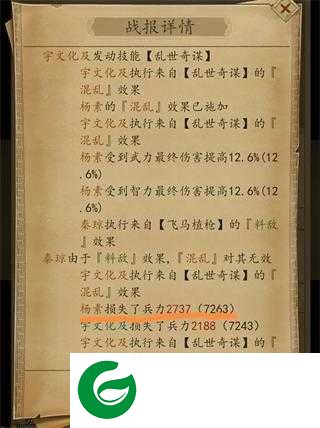 战报详情
宇文化及发动技能【乱世奇谋】
宇文化及执行来自【乱世奇谋】的『
混乱』效果
杨素的『混乱』效果已施加
宇文化及执行来自【乱世奇谋】的『
混乱』效果
杨素受到武力最终伤害提高12.6%(12
.6%)
杨素受到智力最终伤害提高12.6%(12
.6%)
秦琼执行来自【飞马植枪】的『料敌
』效果
秦琼由于『料敌』效果,『混乱』对其无效
宇文化及执行来自【乱世奇谋】的『
混乱』效果
杨素损失了兵力2737（7263）
宇文化及损失了兵力2188（7243）
宇文化及执行来自【乱世奇谋】的『